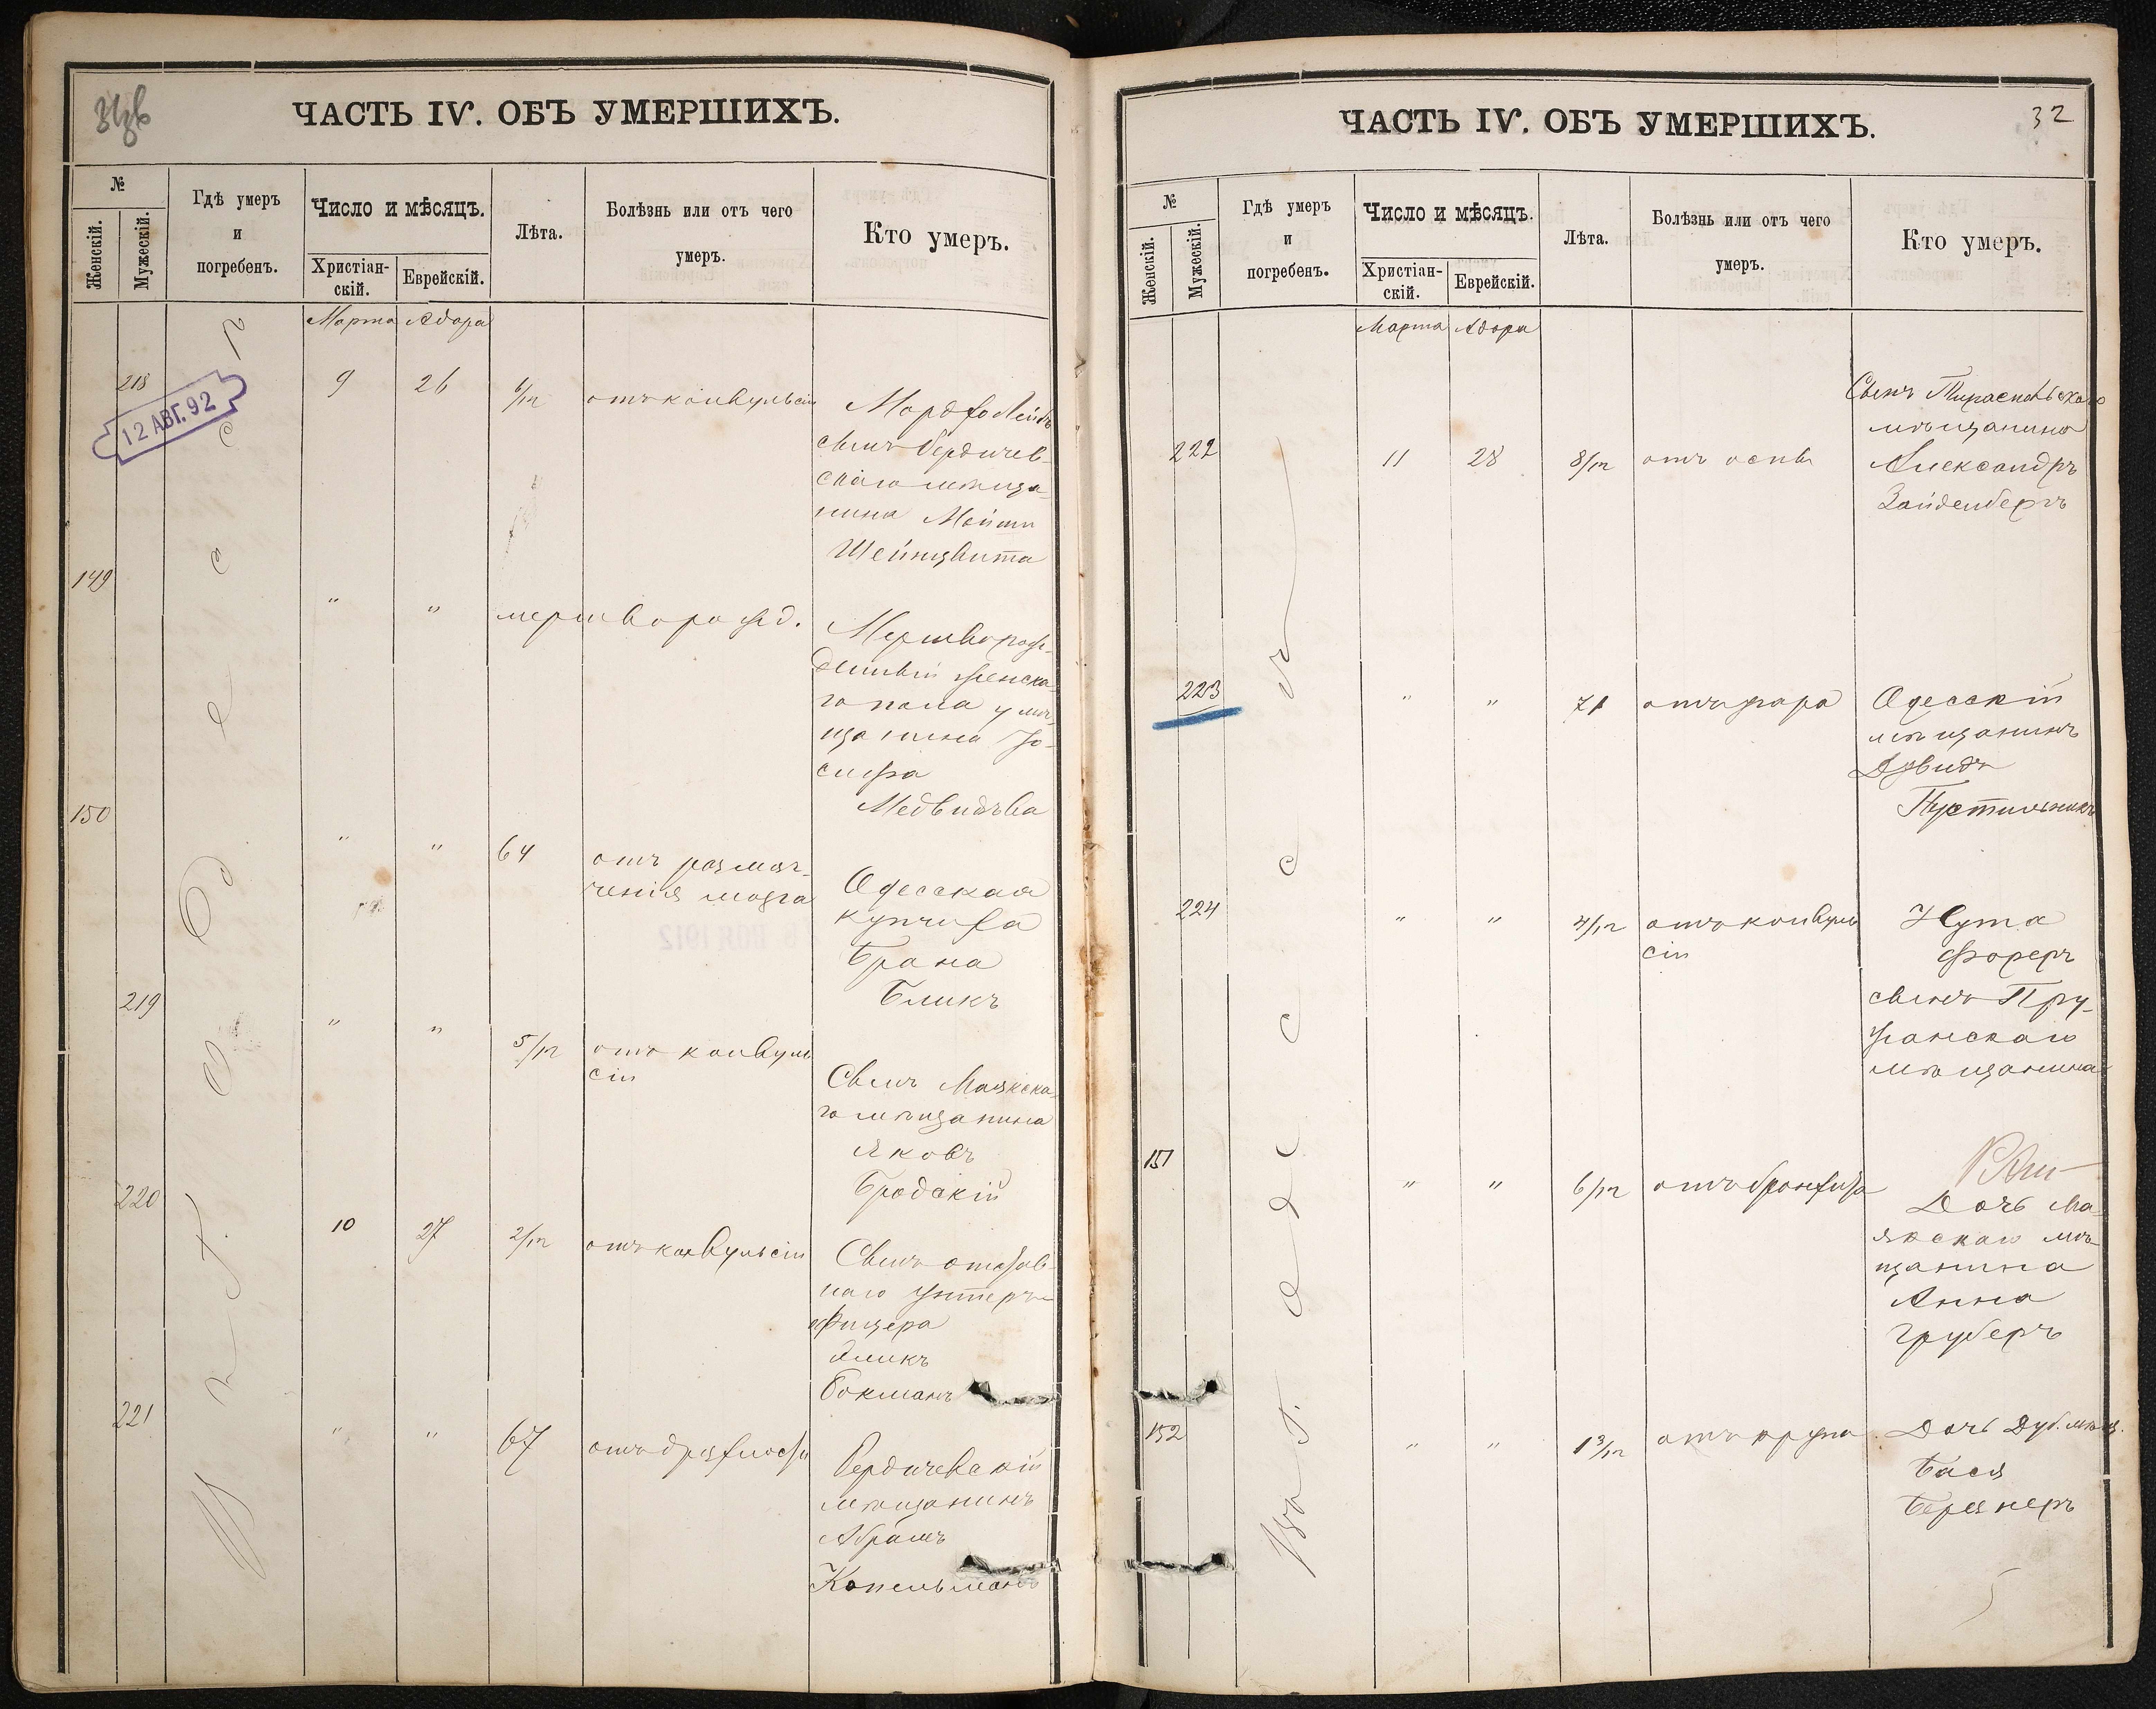 ЧАСТЬ IV. ОБЪ УМЕРШИХЪ.
№
Женскій.
Мужескій.
Гдѣ умеръ
и
погребенъ.
Число и мѣсяцъ.
Христіан-
скій.
Еврейскій.
Лѣта.
Болѣзнь или отъ чего
умеръ.
Кто умеръ.
Марта Адара
218
12 АВГ. 92
9 26 6/12 отъ конвульсіи
Мордко Лейбъ
сынъ Бердичев-
скаго мѣща-
нина Мойши
Шейнцвита
149
" " мертворожд.
Мертворож-
денный женска-
го пола у мѣ-
щанина Іо-
сифа
Медвидѣва
150
" " 64 отъ размяг-
ченія мозга
Одесская
купчиха
Брана
Бликъ
219
" " 5/12 отъ конвуль
сіи
Сынъ Маякска-
го мѣщанина
Яковъ
Бродскій
220
10 27 2/12 отъ конвульсіи
Сынъ отстав-
наго унтеръ-
офицера
Аликъ
Бокманъ
221
" " 67 отъ дряхлости
Бердичевскій
мѣщанинъ
Абрамъ
Копельманъ
Въ г. Одессѣ
ЧАСТЬ IV. ОБЪ УМЕРШИХЪ.
32
№
Женскій.
Мужескій.
Гдѣ умеръ
и
погребенъ.
Число и мѣсяцъ.
Христіан-
скій.
Еврейскій.
Лѣта.
Болѣзнь или отъ чего
умеръ.
Кто умеръ.
Марта Адара
222
11 28 8/12 отъ оспы
Сынъ Тираспольскаго
мѣщанина
Александръ
Зайденбергъ
223
" " 71 отъ жара
Одесскій
мѣщанинъ
Давидъ
Пустильникъ
224
" " 4/12 отъ конвуль
сіи
Нута
Фореръ
сынъ Пру-
жанскаго
мѣщанина
151
" " 6/12 отъ бронхита
Дочь Ма-
якскаго мѣ-
щанина
Анна
Груберъ
152
" " 1 3/12 отъ крупа
Дочь Дуб. мѣщ.
Бася
Берзнеръ
Въ г. Одессѣ